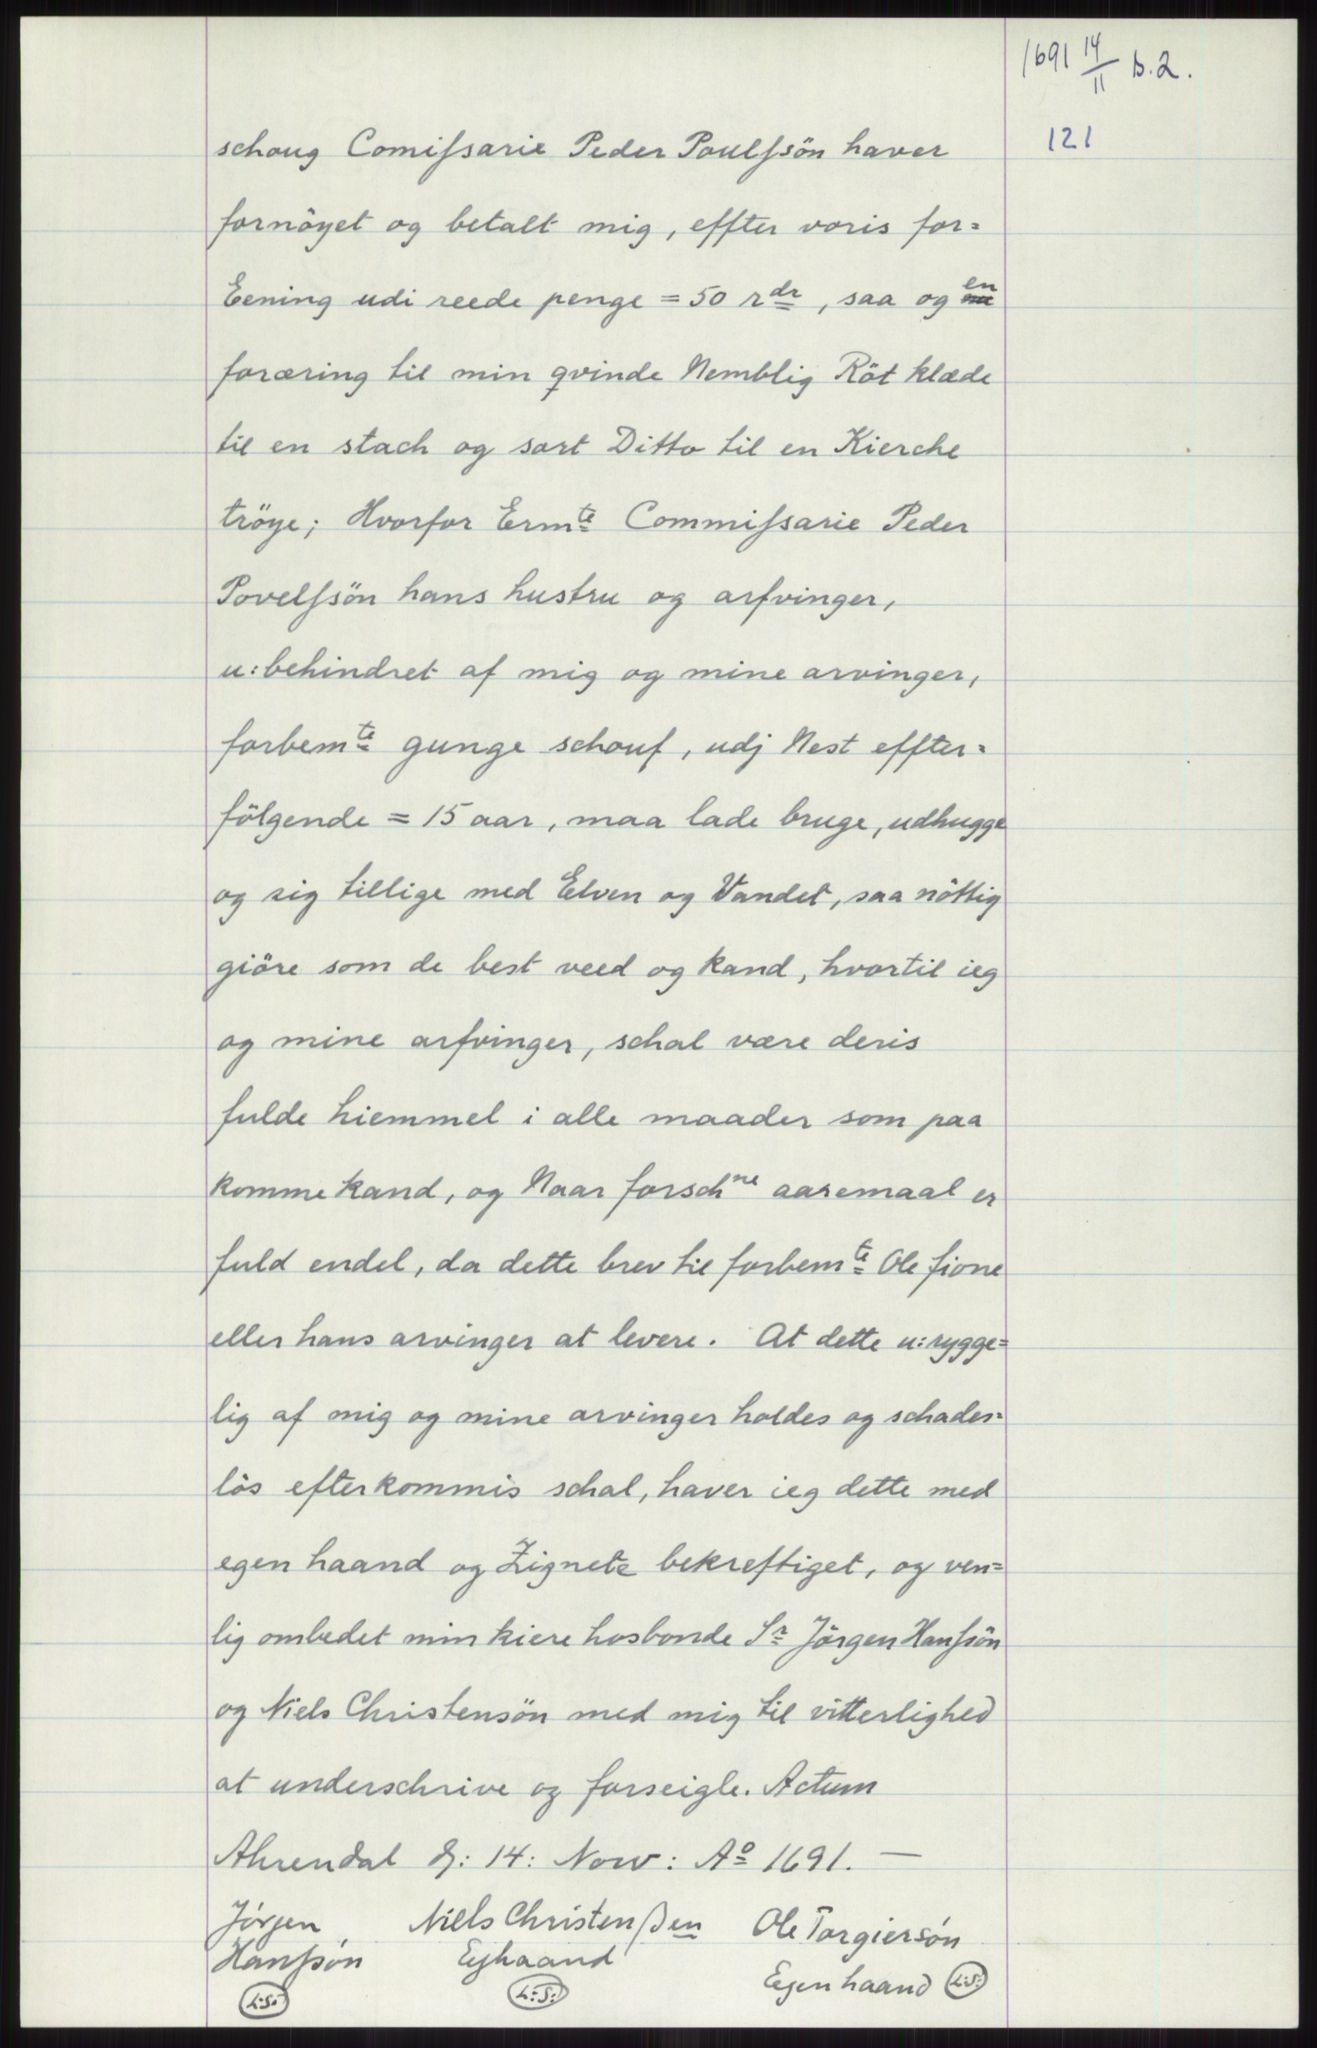 1691 14/11 b.2.
121
schoug Comiſsarie Peder Poulſsön haver
fornöyet og betalt mig, effter voris for=
Eening udi reede penge = 50 rdr, saa og en
foræring til min qvinde Nemblig Röt klæde
til en stach og sort Ditto til en Kierche
tröye; Hvorfor Ermte Commiſsarie Peder
Povelſsön hans hustru og arfvinger,
u:behindret af mig og mine arvinger,
forbemte gunge schouf, udj Nest effter=
fölgende = 15 aar, maa lade bruge, udhugge
og sig tillige med Elven og Vandet, saa nöttig
giöre som de best veed og kand, hvortil ieg
og mine arfvinger, schal være deris
fulde hiemmel i alle maader som paa
komme kand, og Naar forschne aaremaal er
fuld endel, da dette brev til forbemte Ole fione
eller hans arvinger at levere. At dette u:rygge=
lig af mig og mine arvinger holdes og schades=
lös efterkommis schal, haver ieg dette med
egen haand og Zignete bekreftiget, og ven=
lig ombedet min kiere hosbonde Sr Jörgen Hanſsön
og Niels Christensön med mig til vitterlighed
at underschrive og forseigle. Actum
Ahrendal d: 14: Nov: Ao 1691. —
Jörgen Niels Christenßen Ole Torgiersön
Hanſsön Eghaand Egenhaand L:S:
L:S: L:S: